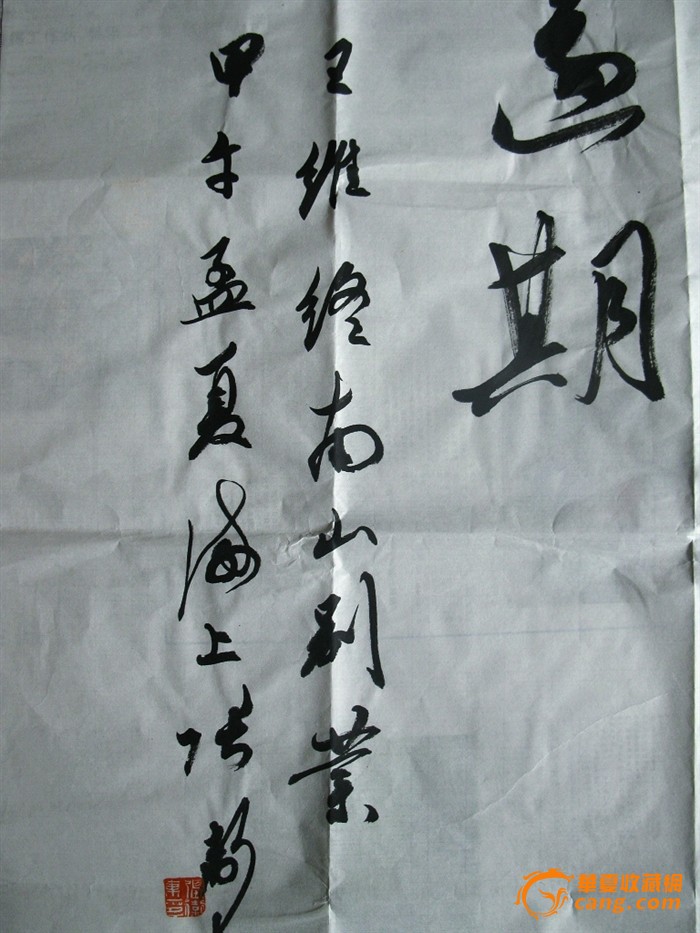 還期
王維終南山別業
甲午孟夏海上張
華夏收藏網
cang.com